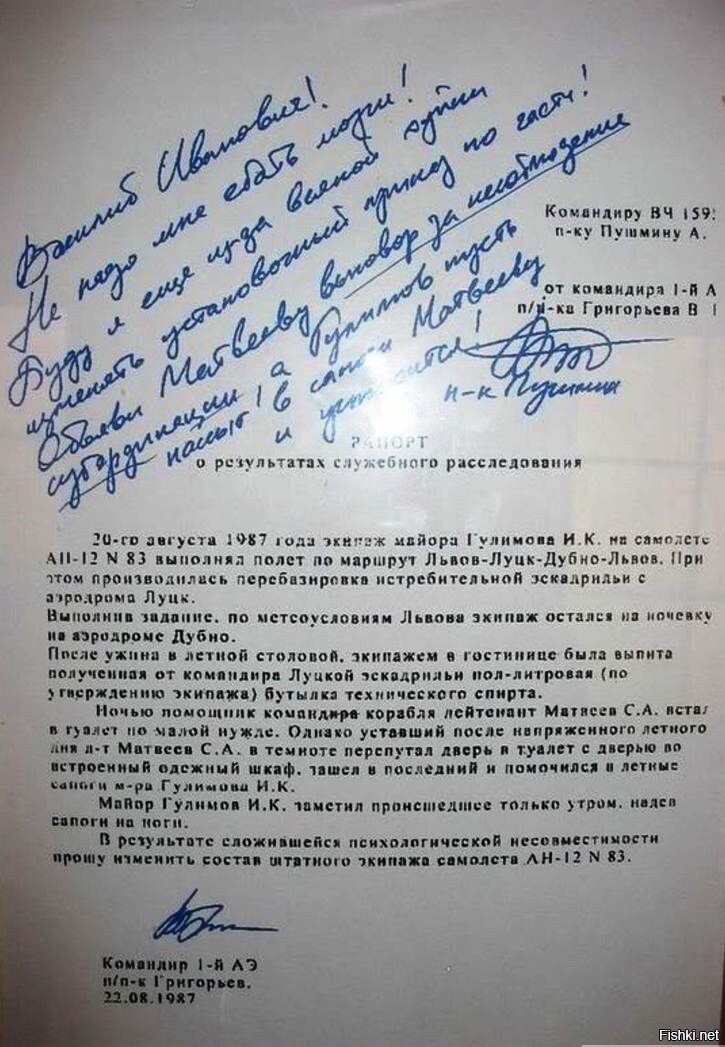 Василий Иванович!
Не надо мне ебать мозги!
Буду я еще из-за всякой хуйни
изменять установочный приказ по части!
Объяви Матвееву выговор за несоблюдение
субординации, а Гулимов пусть
нассыт в сапоги Матвееву
и успокоится!
п-к Пушмин
Командиру ВЧ 159
п-ку Пушмину А.
от командира 1-й А
п/п-ка Григорьева В
РАПОРТ
о результатах служебного расследования
20-го августа 1987 года экипаж майора Гулимова И.К. на самолете
АН-12 N 83 выполнял полет по маршрут Львов-Луцк-Дубно-Львов. При
этом производилась перебазировка истребительной эскадрильи с
аэродрома Луцк.
Выполнив задание, по метеоусловиям Львова экипаж остался на ночевку
на аэродроме Дубно.
После ужина в летной столовой, экипажем в гостинице была выпита
полученная от командира Луцкой эскадрильи пол-литровая (по
утверждению экипажа) бутылка технического спирта.
Ночью помощник командира корабля лейтенант Матвеев С.А. встал
в туалет по малой нужде. Однако уставший после напряженного летного
дня л-т Матвеев С.А. в темноте перепутал дверь в туалет с дверью во
встроенный одежный шкаф, зашел в последний и помочился в летные
сапоги м-ра Гулимова И.К.
Майор Гулимов И.К. заметил происшедшее только утром, надев
сапоги на ноги.
В результате сложившейся психологической несовместимости
прошу изменить состав штатного экипажа самолета АН-12 N 83.
Командир 1-й АЭ
п/п-к Григорьев.
22.08.1987
Fishki.net